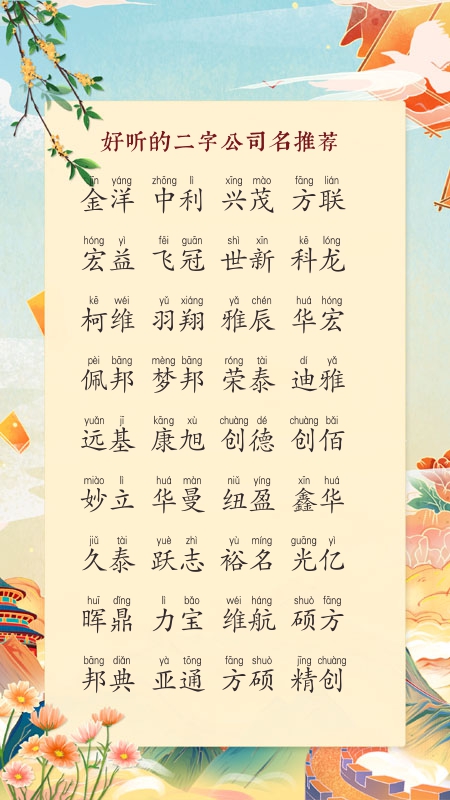 好听的二字公司名推荐
jīn yáng zhōng lì xīng mào fāng lián
金洋 中利 兴茂 方联
hóng yì fēi guān shì xīn kē lóng
宏益 飞冠 世新 科龙
kē wéi yǔ xiáng yǎ chén huá hóng
柯维 羽翔 雅辰 华宏
pèi bāng mèng bāng róng tài dí yǎ
佩邦 梦邦 荣泰 迪雅
yuǎn jī kāng xù chuàng dé chuàng bǎi
远基 康旭 创德 创佰
miào lì huá màn niǔ yíng xīn huá
妙立 华曼 纽盈 鑫华
jiǔ tài yuè zhì yù míng guāng yì
久泰 跃志 裕名 光亿
huī dǐng lì bǎo wéi háng shuò fāng
晖鼎 力宝 维航 硕方
bāng diǎn yà tōng fāng shuò jīng chuàng
邦典 亚通 方硕 精创